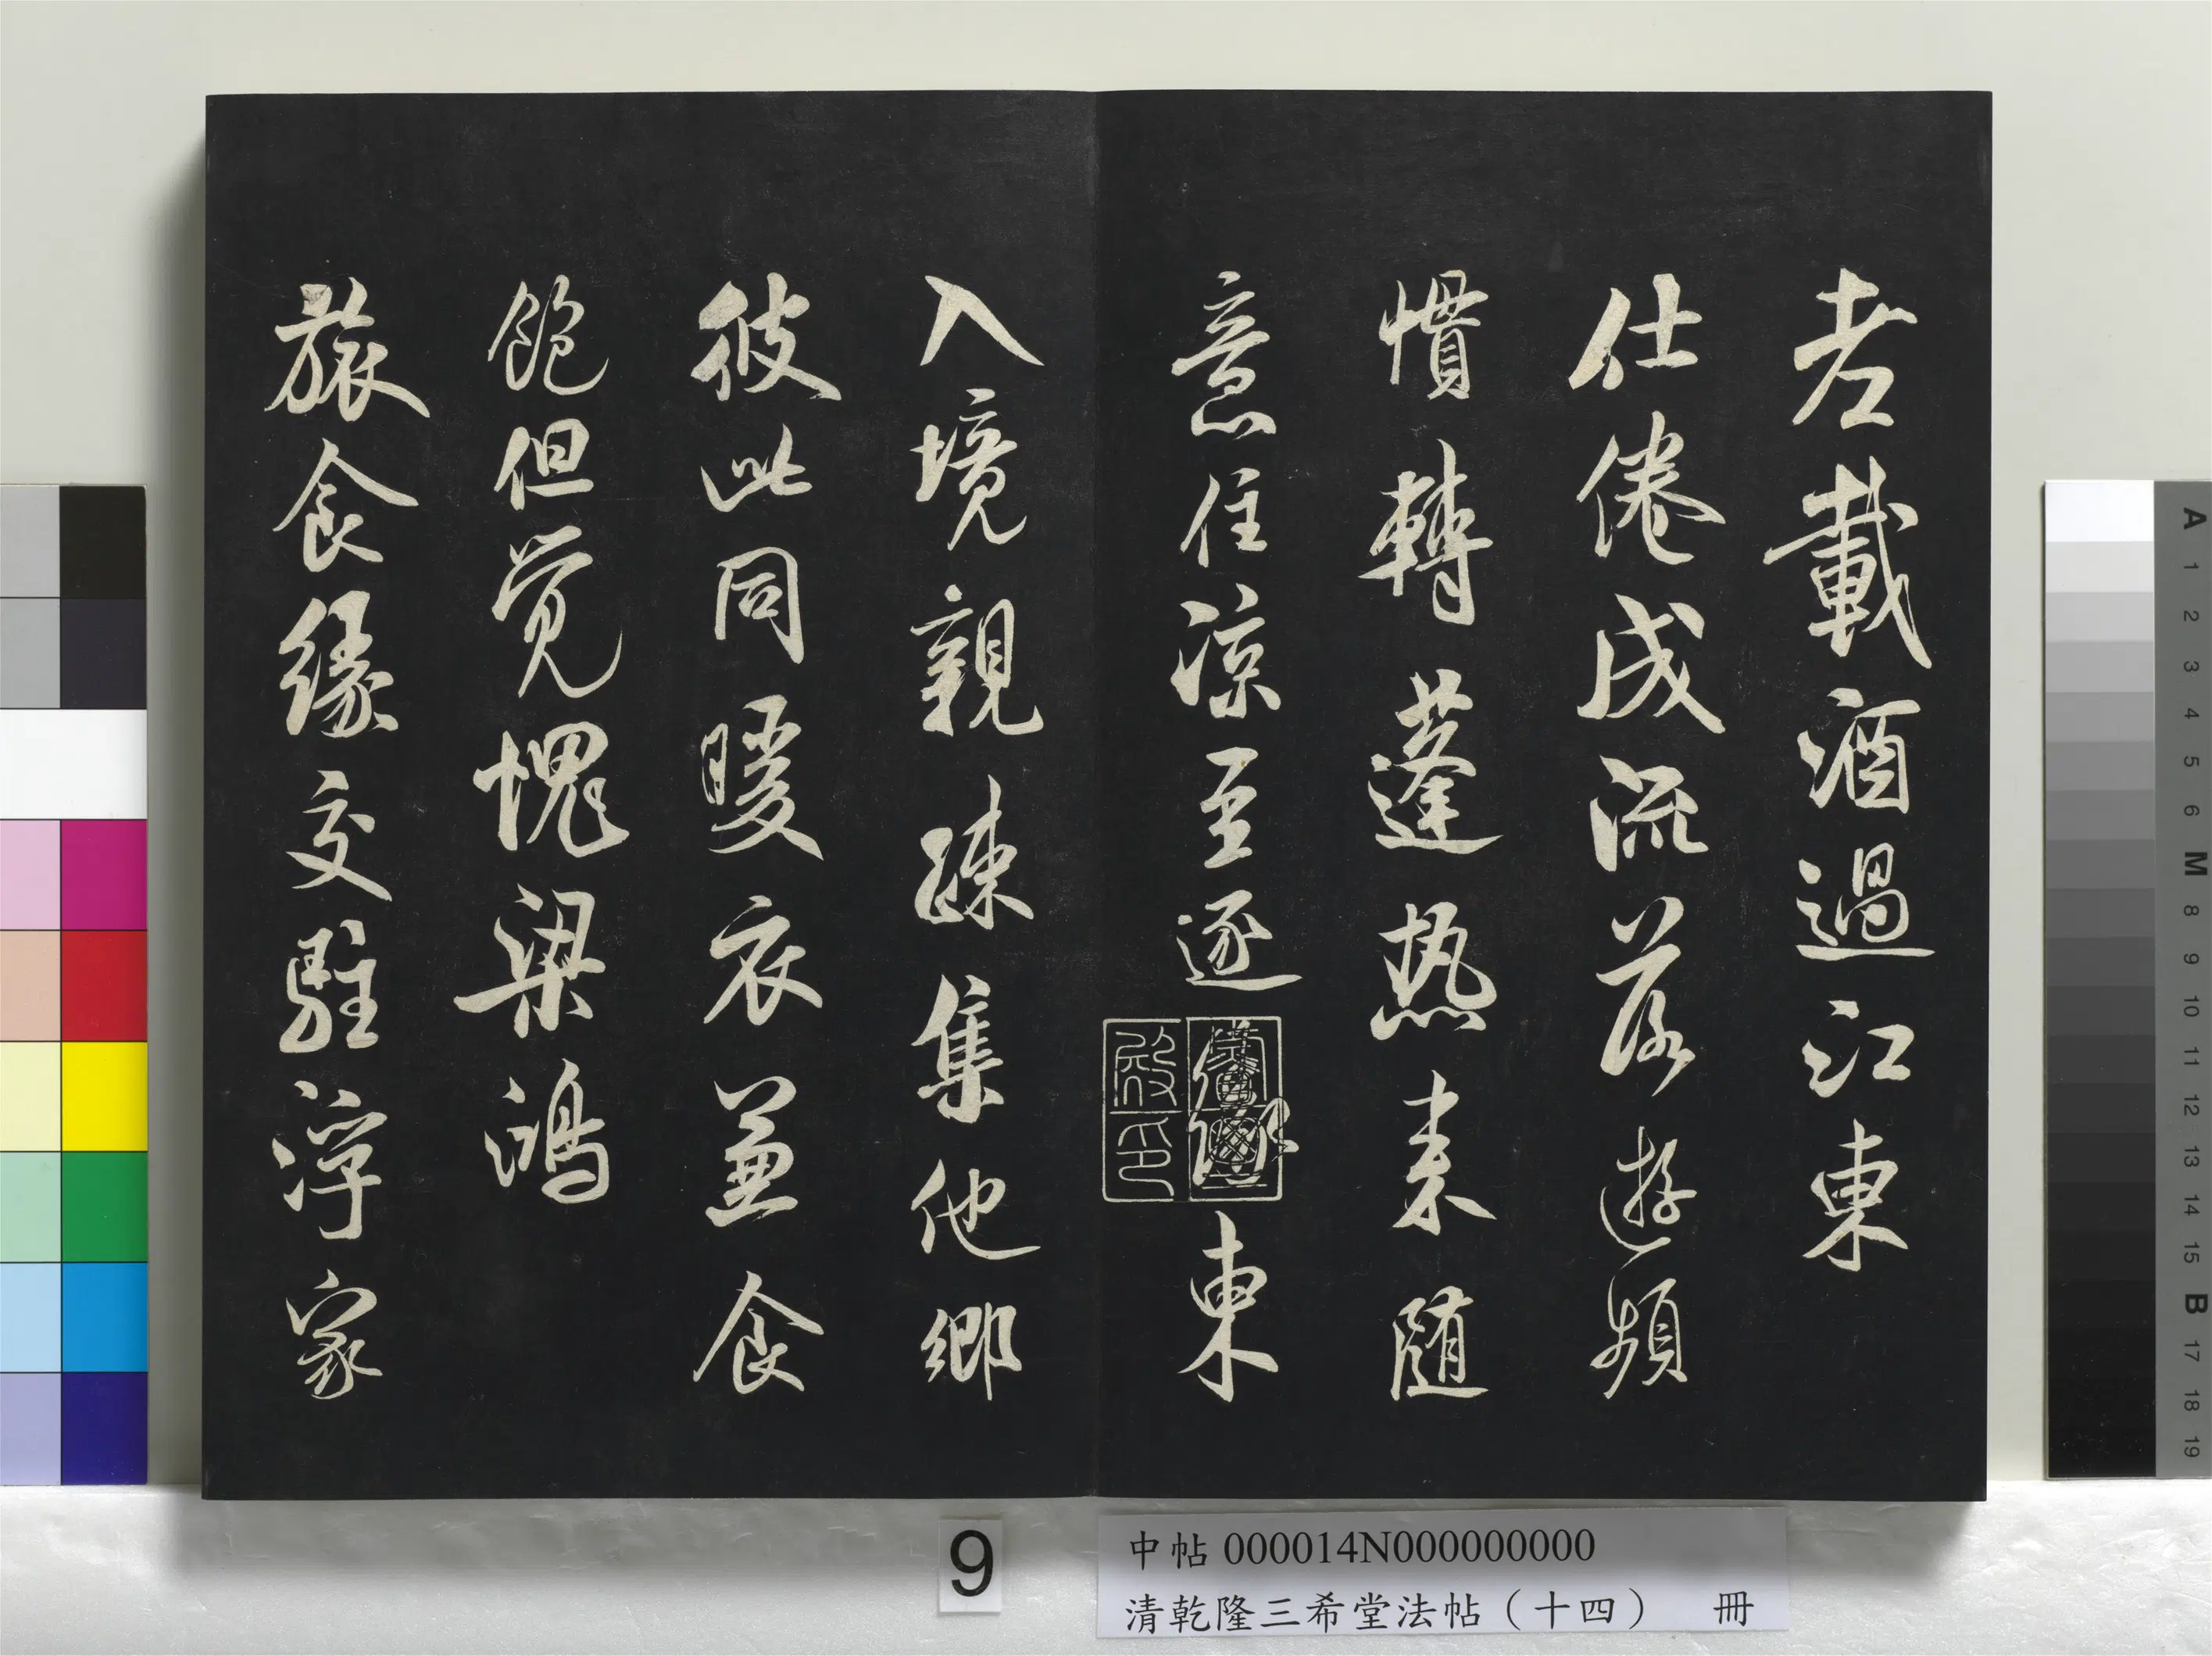 老載酒過江東
仕倦成流落遊頻
慣轉蓬热来随
意住凉至逐緣東
入境親疎集他鄉
彼此同暖衣兼食
飽但觉愧梁鴻
旅食緣交駐浮家
9
中帖 000014N000000000
清乾隆三希堂法帖（十四） 冊
A 1 2 3 4 5 6 M 8 9 10 11 12 13 14 15 B 17 18 19